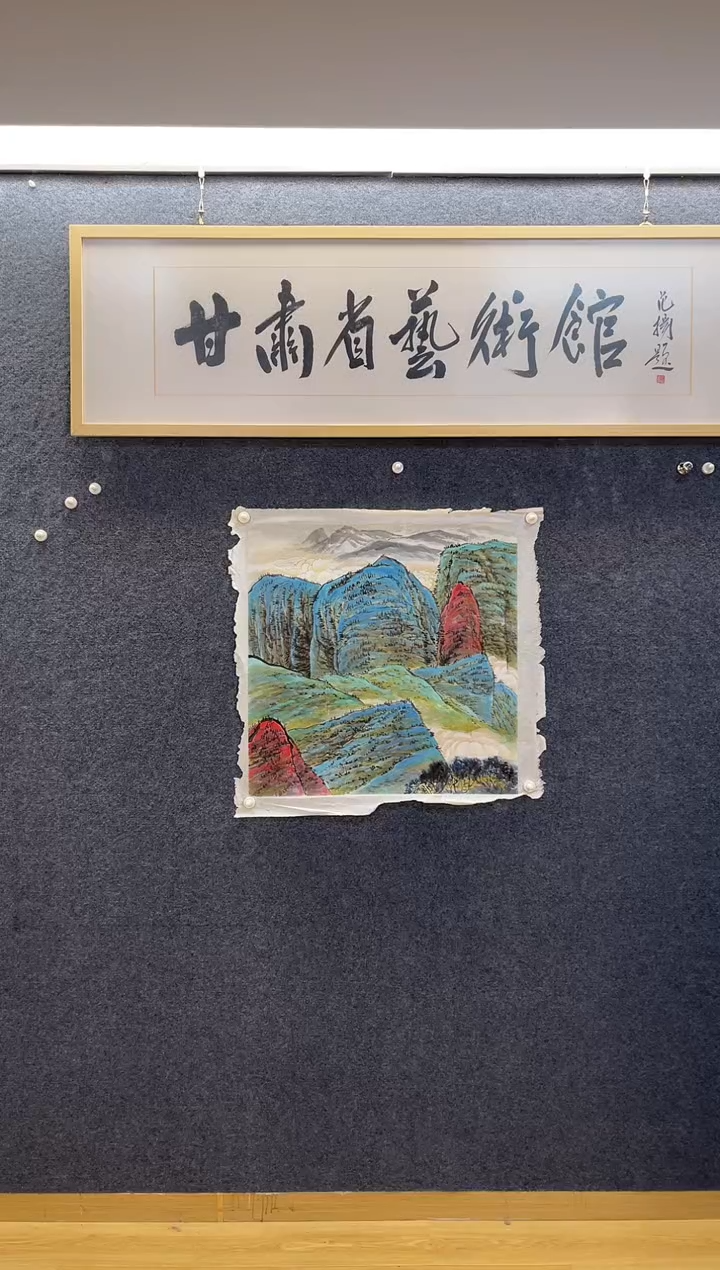 甘肅省藝術館
范攈題